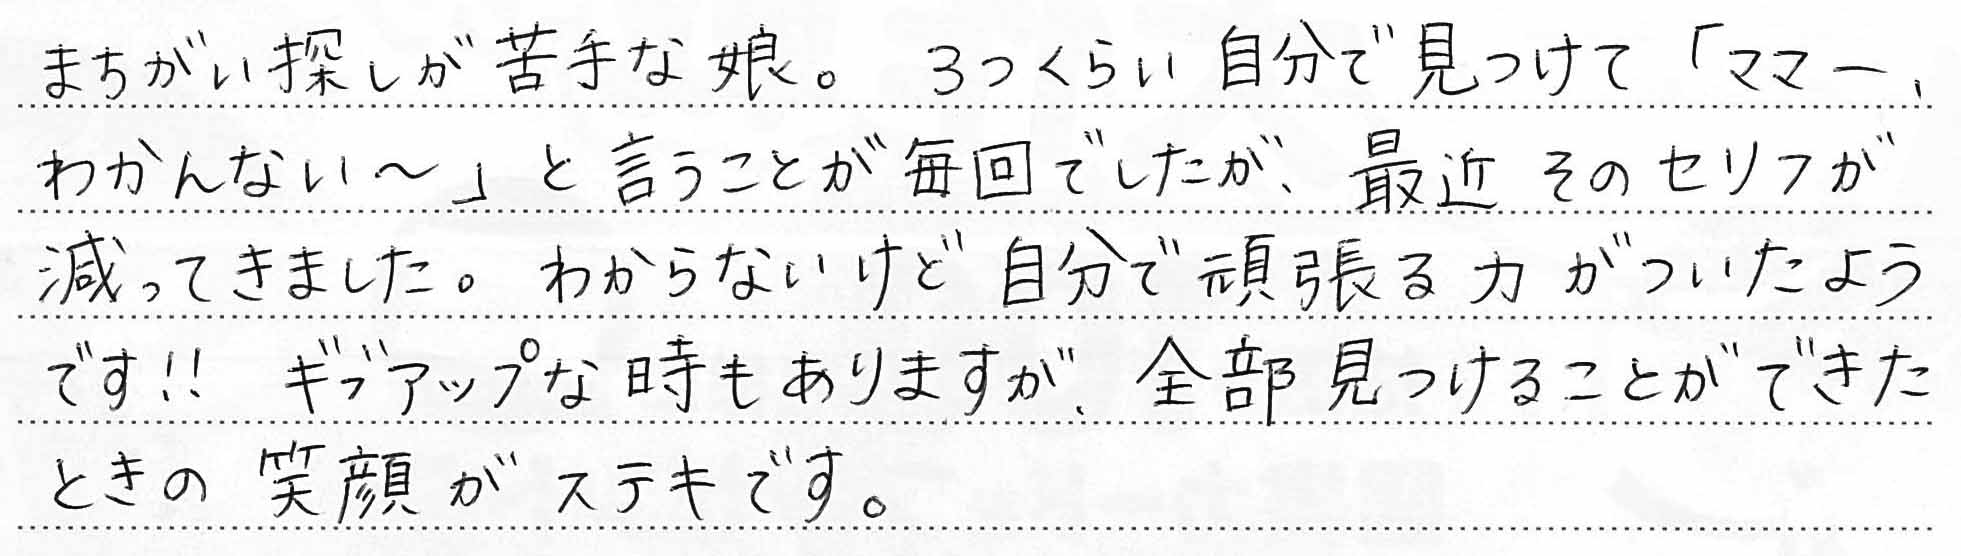 まちがい探しが苦手な娘。 3つくらい自分で見つけて「ママー、
わかんない〜」と言うことが毎回でしたが、最近そのセリフが
減ってきました。わからないけど自分で頑張る力がついたよう
です!! ギブアップな時もありますが、全部見つけることができた
ときの笑顔がステキです。